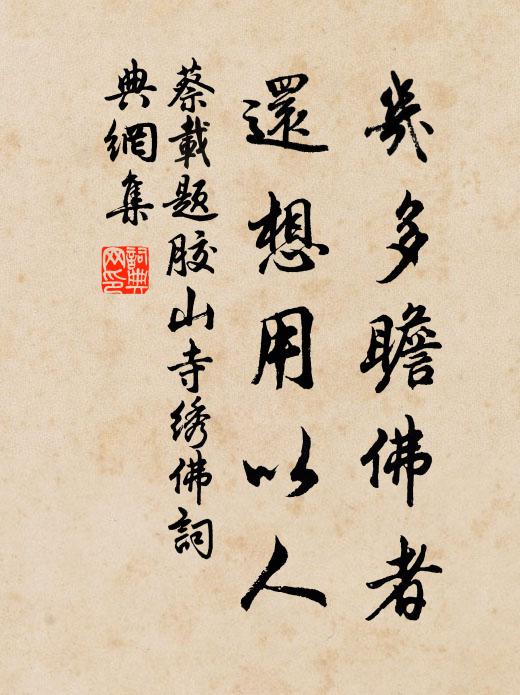 幾多瞻佛者
還想用以人
蔡載題胶山寺绣佛詞
典網集
詞典網印